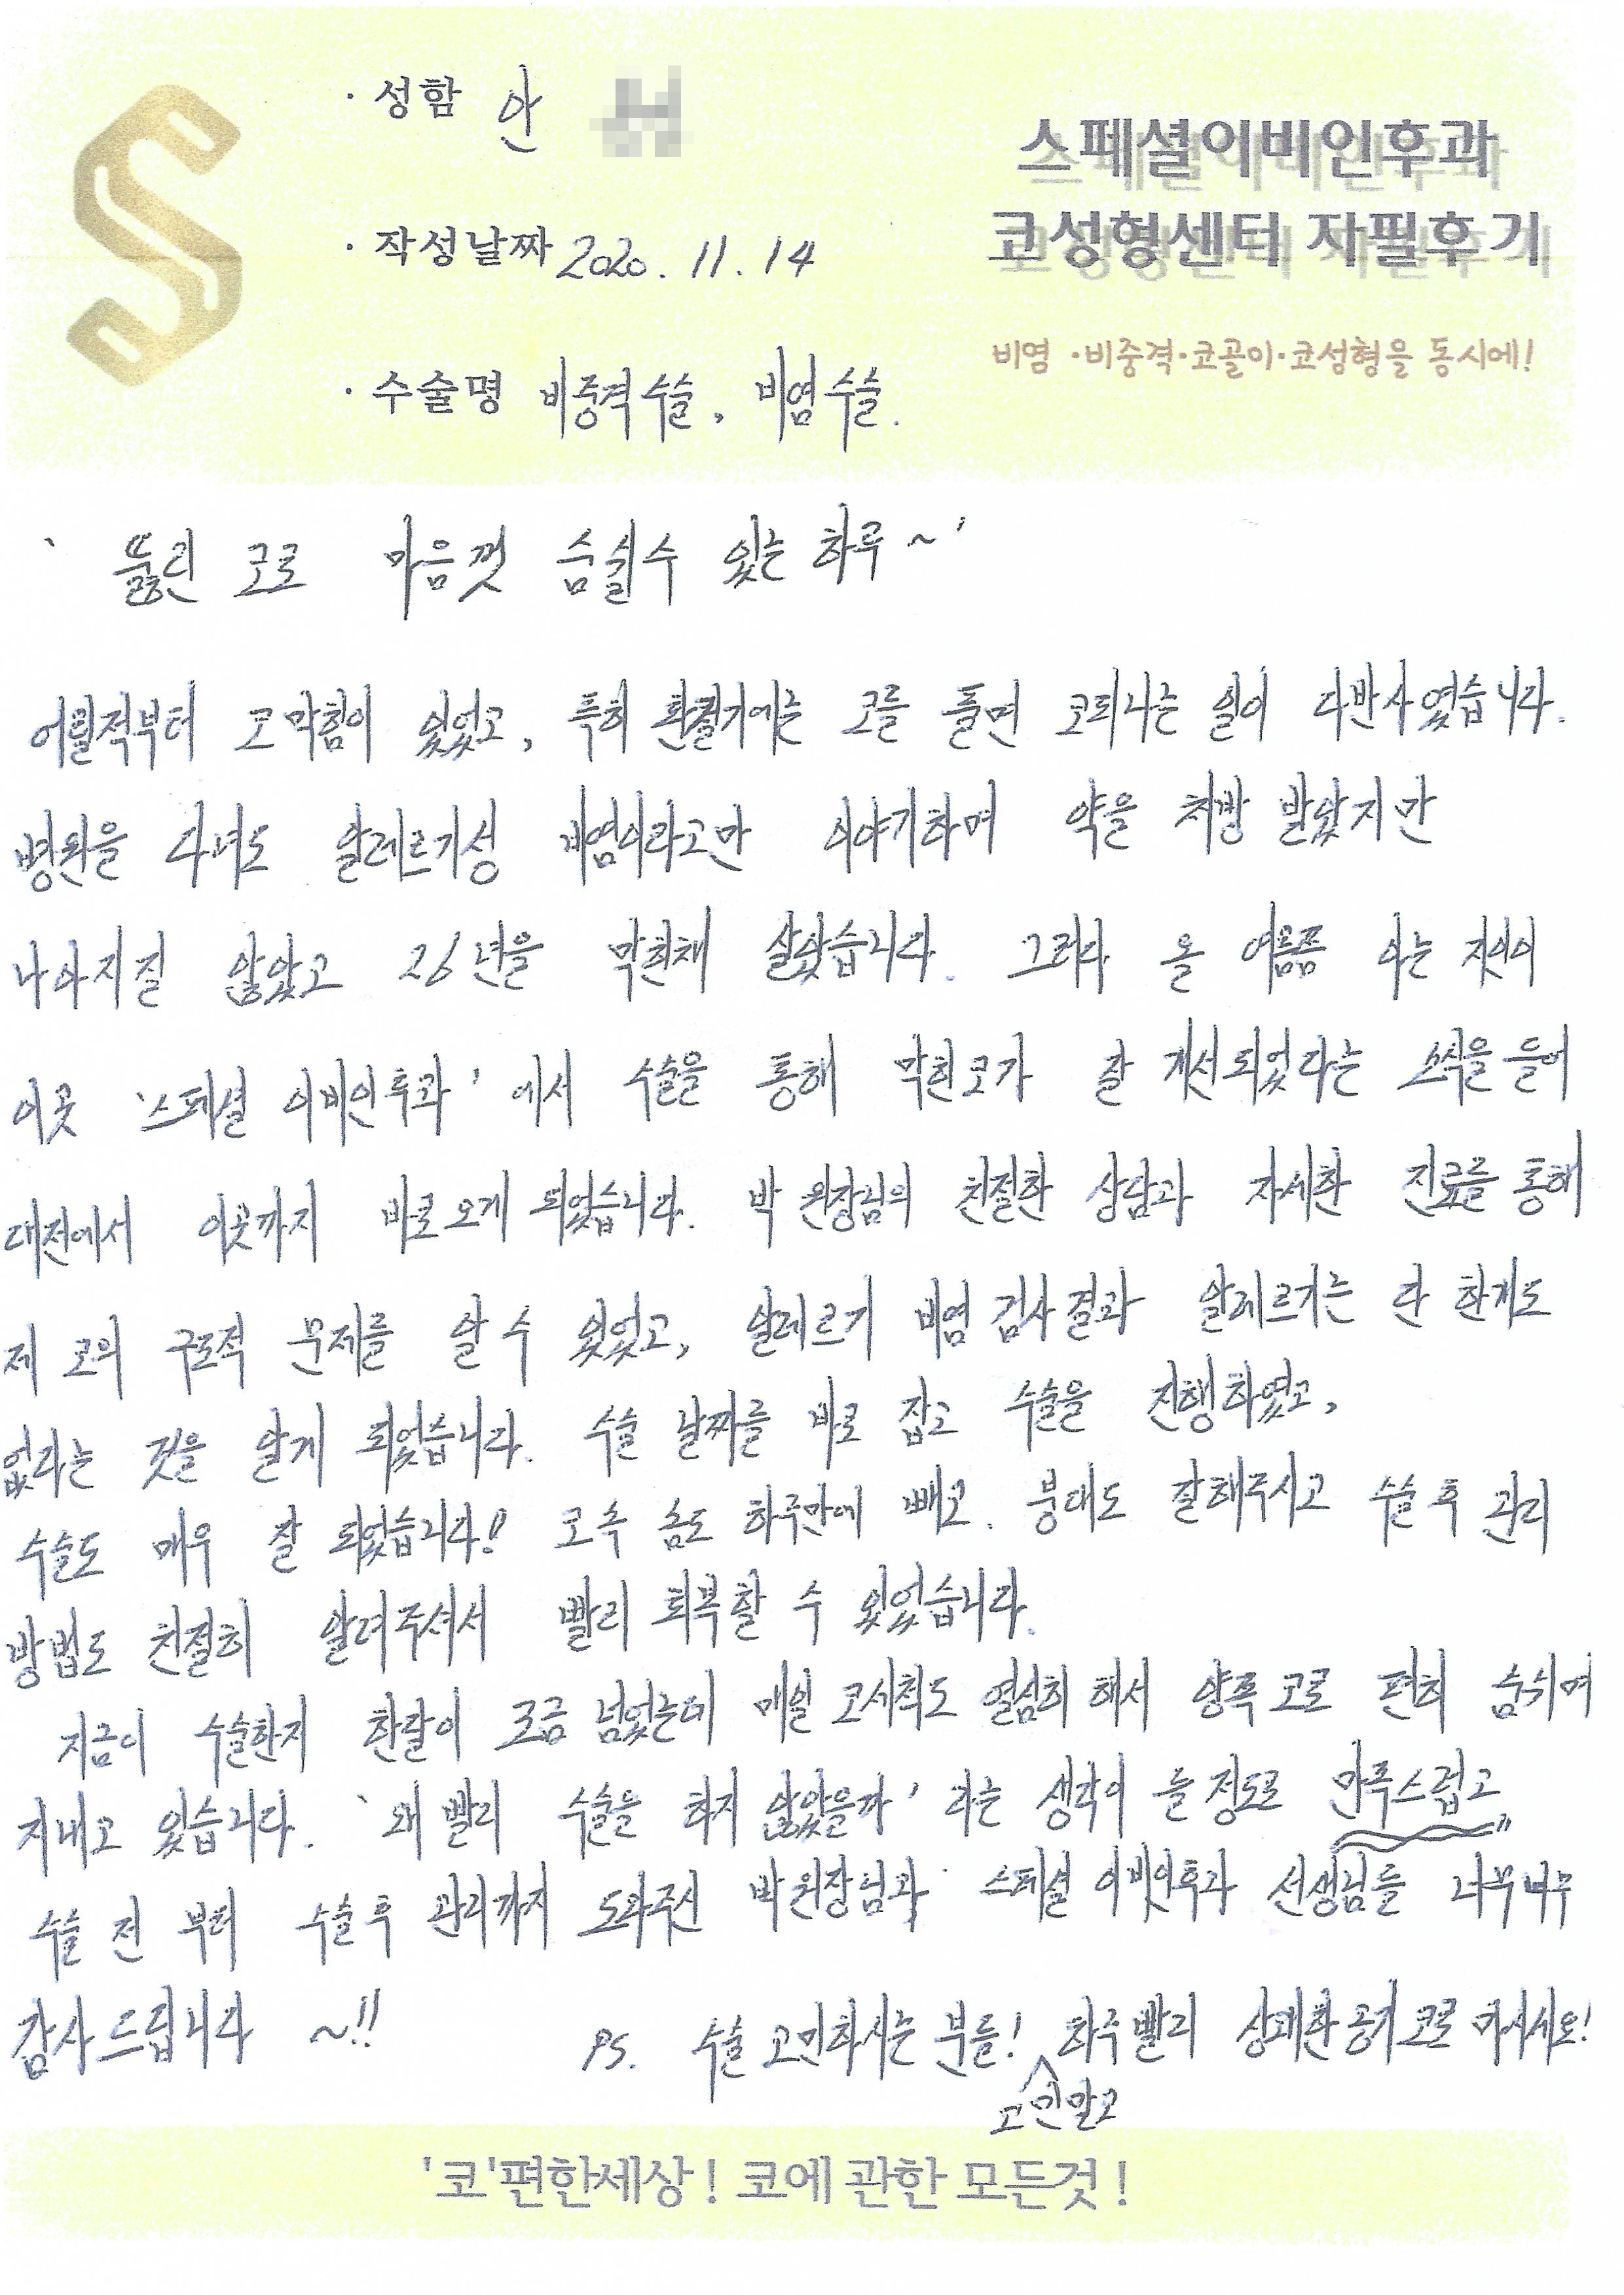 · 성함 안
스페셜이비인후과
코성형센터 자필후기
· 작성날짜 2020. 11. 14
비염 ·비중격·코골이·코성형을 동시에!
· 수술명 비중격수술, 비염수술.
' 뚫린 코로 마음껏 숨쉴수 있는 하루~'
어릴적부터 코막힘이 있었고, 특히 환절기에는 코를 풀면 코피나는 일이 다반사였습니다.
병원을 다녀도 알레르기성 비염이라고만 이야기하며 약을 처방 받았지만
나아지질 않았고 26년을 막힌채 살았습니다. 그러다 올 여름쯤 아는 지인이
이곳 '스페셜 이비인후과' 에서 수술을 통해 막힌코가 잘 개선되었다는 소식을 들어
대전에서 이곳까지 바로오게 되었습니다. 박 원장님의 친절한 상담과 자세한 진료를 통해
제 코의 구조적 문제를 알 수 있었고, 알레르기 비염 검사결과 알레르기는 단 한개도
없다는 것을 알게 되었습니다. 수술 날짜를 바로 잡고 수술을 진행하였고,
수술도 매우 잘 되었습니다!! 코속 솜도 하루만에 빼고. 붕대도 잘해주시고 수술후 관리
방법도 친절히 알려주셔서 빨리 회복할 수 있었습니다.
지금이 수술한지 한달이 조금 넘었는데 매일 코세척도 열심히 해서 양쪽 코로 편히 숨쉬며
지내고 있습니다. '왜 빨리 수술을 하지 않았을까' 라는 생각이 들정도로 만족스럽고
수술 전 부터 수술후 관리까지 도와주신 박원장님과 스페셜 이빈인후과 선생님들 너무너무
감사드립니다 ~!!
PS. 수술 고민하시는 분들! 고민말고 하루빨리 상쾌한공기 코로 마시세요!
'코'편한세상! 코에 관한 모든것!